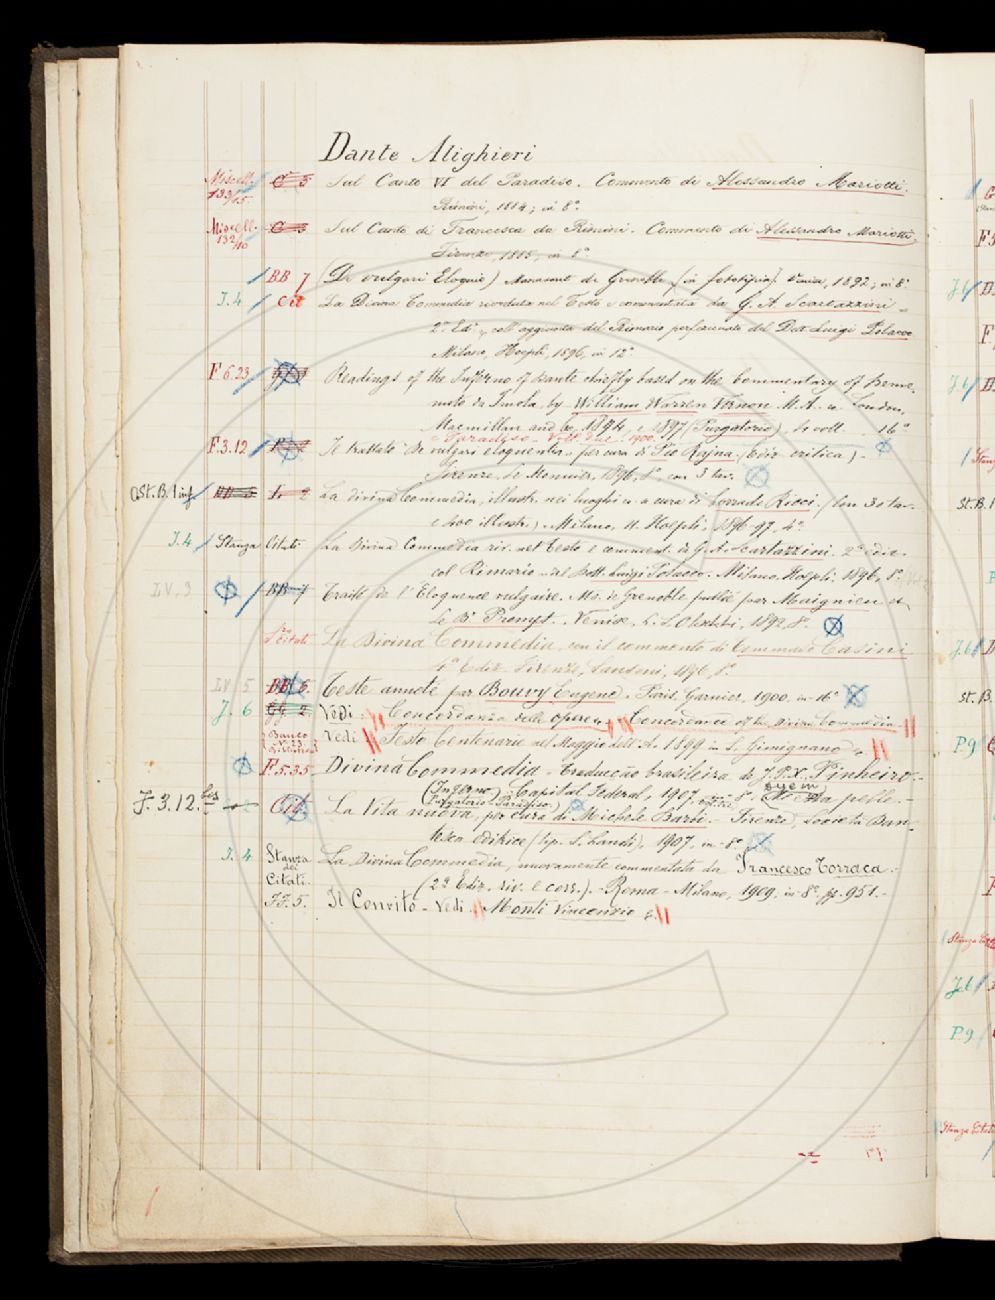 Dante Alighieri
Miscell. 132/15 C 5 Sul Canto VI del Paradiso. Commento di Alessandro Mariotti.
Rimini, 1884; in 8°
Miscell. 132/10 C 5 Sul Canto di Francesca da Rimini. Commento di Alessandro Mariotti,
Firenze, 1885, in 8°
BB 7 (De vulgari Eloquio) Manuscrit de Grenoble (in fototipia). Venise, 1892; in 8°
J. 4 Cit La Divina Commedia riveduta nel Testo e commentata da G. A. Scartazzini
2ª Ediz. coll' aggiunta del Rimario perfezionato del Dott. Luigi Polacco
Milano, Hoepli, 1896, in 12°
F 6.23 Readings of the Inferno of Dante chiefly based on the Commentary of Benve-
nuto da Imola, by William Warren Vernon M. A. London,
Macmillan and Co, 1894, e 1897 (Purgatorio), 16°
Paradiso - Voll. due. 1900.
F. 3.12 Il trattato "De vulgari eloquentia" per cura di Pio Rajna. (Ediz. critica) -
Firenze, Le Monnier, 1896, 8°, con 3 tav.
Ast. B. 1 inf. I. 2 La divina Commedia, illustr. nei luoghi a cura di Corrado Ricci. (Con 30 tav.
e 400 illustr.) Milano, U. Hoepli, 1896-97, 4°
J. 4 Stanza Citati La Divina Commedia riv. nel testo e comment. da G. A. Scartazzini. 2ª ediz.
col Rimario del Dott. Luigi Polacco. Milano, Hoepli, 1896, 8°.
LV. 3 BB 7 Traité de l' Eloquence vulgaire. Ms. de Grenoble publié par Maignien et
le Dr Prompt. Venise, L. S. Olschki, 1892 8°.
Citati La Divina Commedia, con il commento di Tommaso Casini
4ª Ediz. Firenze, Sansoni, 1896, 8°.
LV 5 BB 6. Teste annoté par Bouvy Eugene. Paris, Garnier, 1900, in 16°
J. 6 GG 2 Vedi Concordanza delle opere, Concordance of the Divina Commedia
Banco N. 23 Vedi Sesto Centenario nel Maggio dell' A. 1899 in S. Gimignano
F. 5.35 Divina Commedia - traducção brasileira de J. P. X. Pinheiro. -
(Inferno). Capital Federal, 1907, in 8°. pelle. -
(Purgatorio-Paradiso)
J. 3.12. bis Cit. La Vita nuova, per cura di Michele Barbi. - Firenze, Società Dan-
tesca editrice (tip. S. Landi), 1907, in 8°
J. 4 Stanza dei Citati. La Divina Commedia, nuovamente commentata da Francesco Torraca.
(2ª Ediz. riv. e corr.). - Roma - Milano, 1909, in 8°, pp. 951. -
FF. 5. Il Convito - Vedi Monti Vincenzo